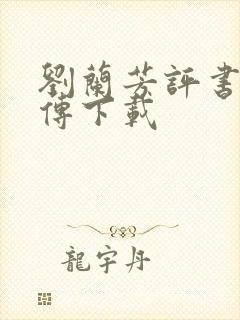 劉蘭芳評書
傳下載
龍宇丹